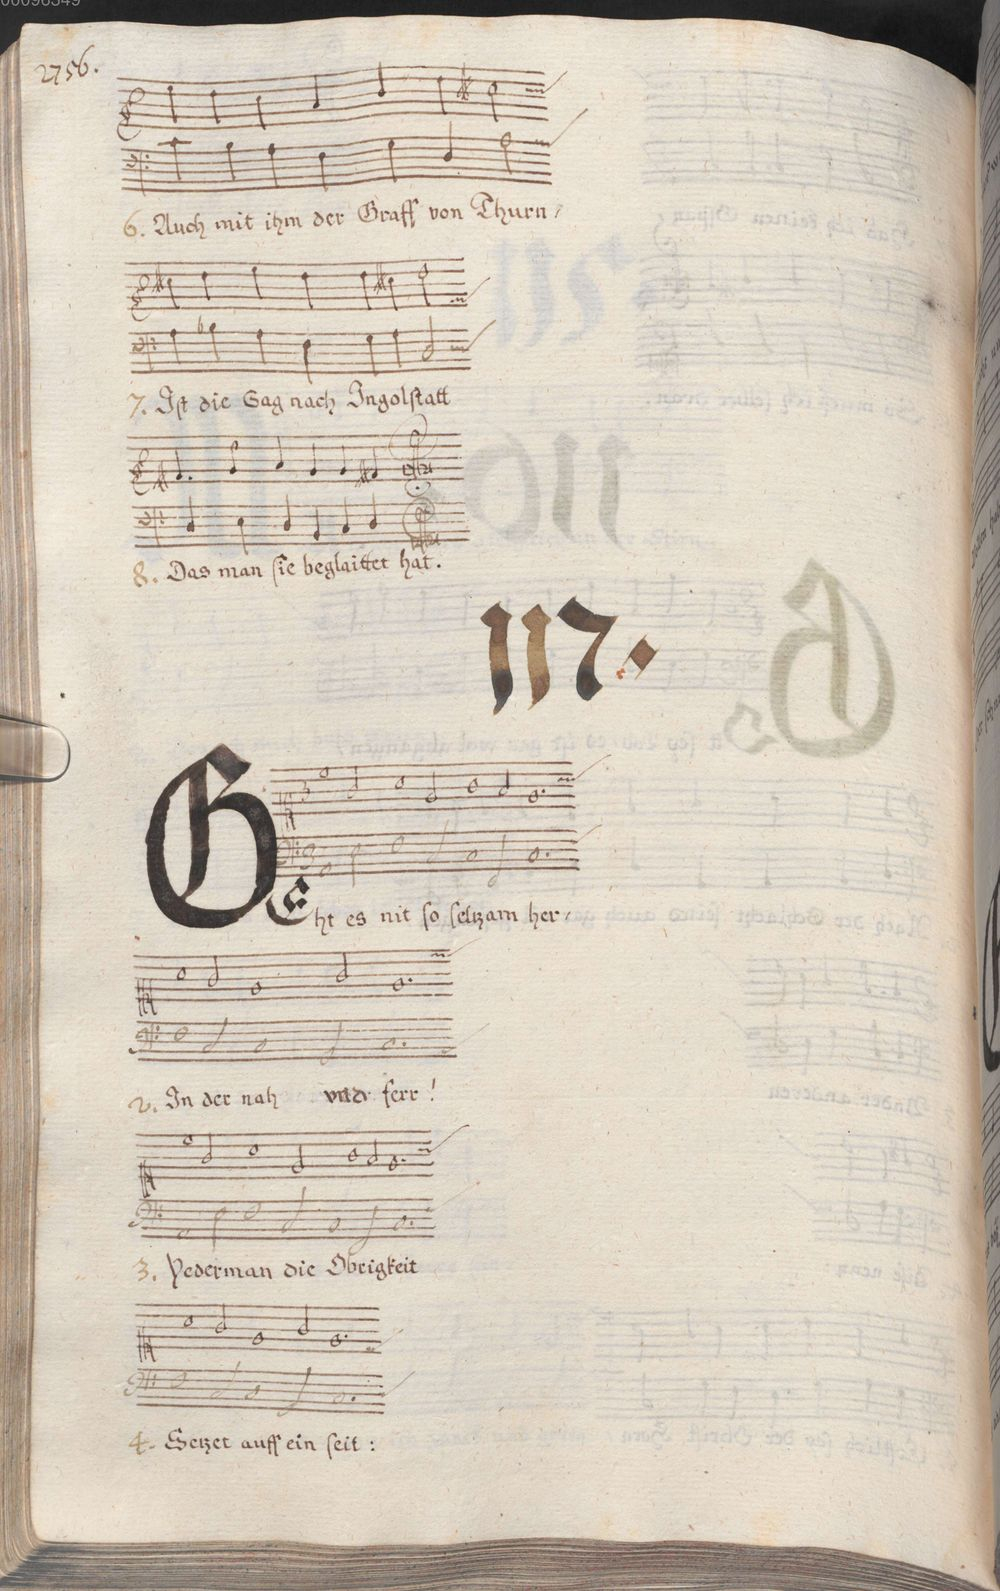 2756.
6. Auch mit ihm der Graff von Thurn /
7. Ist die Sag nach Ingolstatt
8. Das man sie beglaittet hat.
117.
GEht es nit so seltzam her /
2. In der nah vnd ferr !
3. Yederman die Obrigkeit
4. Setzet auff ein seit :